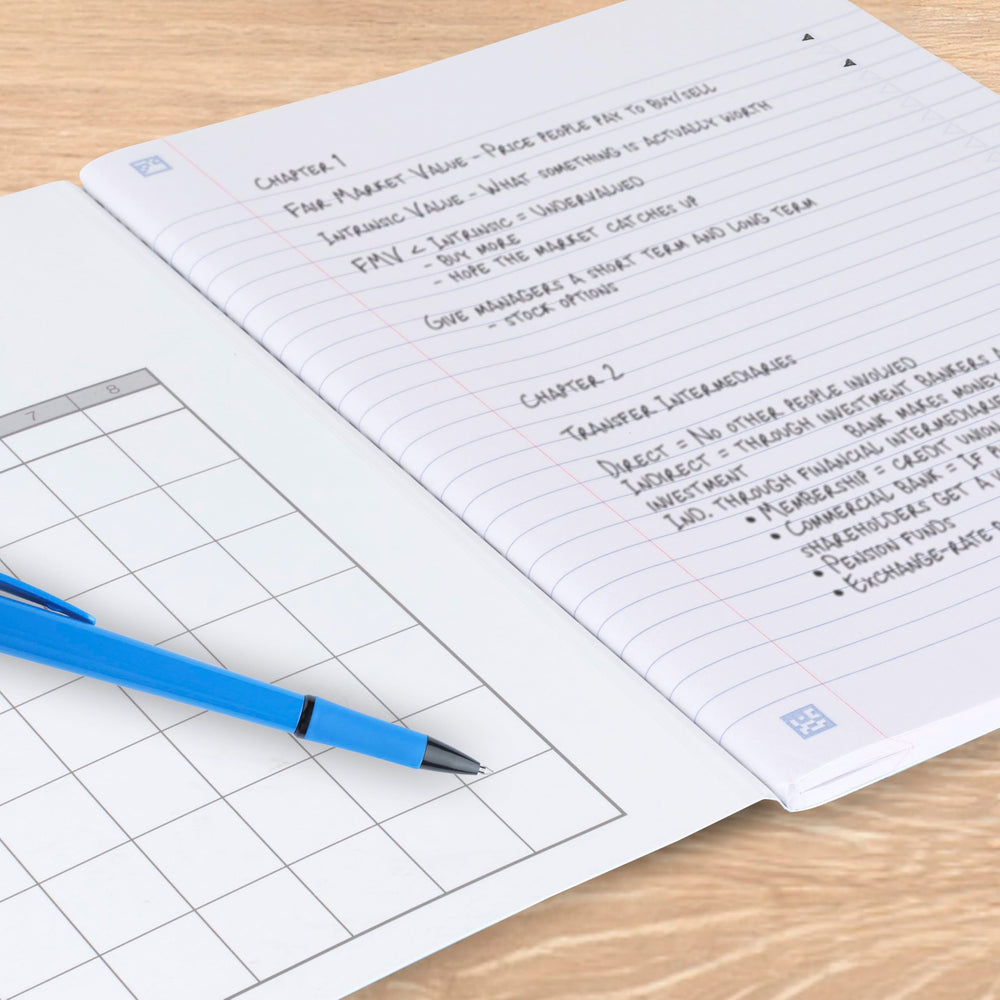 7 8
CHAPTER 1
FAIR MARKET VALUE - PRICE PEOPLE PAY TO BUY/SELL
INTRINSIC VALUE - WHAT SOMETHING IS ACTUALLY WORTH
FMV < INTRINSIC = UNDERVALUED
- BUY MORE
- HOPE THE MARKET CATCHES UP
GIVE MANAGERS A SHORT TERM AND LONG TERM
- STOCK OPTIONS
CHAPTER 2
TRANSFER INTERMEDIARIES
DIRECT = NO OTHER PEOPLE INVOLVED
INDIRECT = THROUGH INVESTMENT BANKERS
INVESTMENT BANK MAKES MONEY
IND. THROUGH FINANCIAL INTERMEDIARIES
• MEMBERSHIP = CREDIT UNION
• COMMERCIAL BANK = IF
SHAREHOLDERS GET A
• PENSION FUNDS
• EXCHANGE-RATE